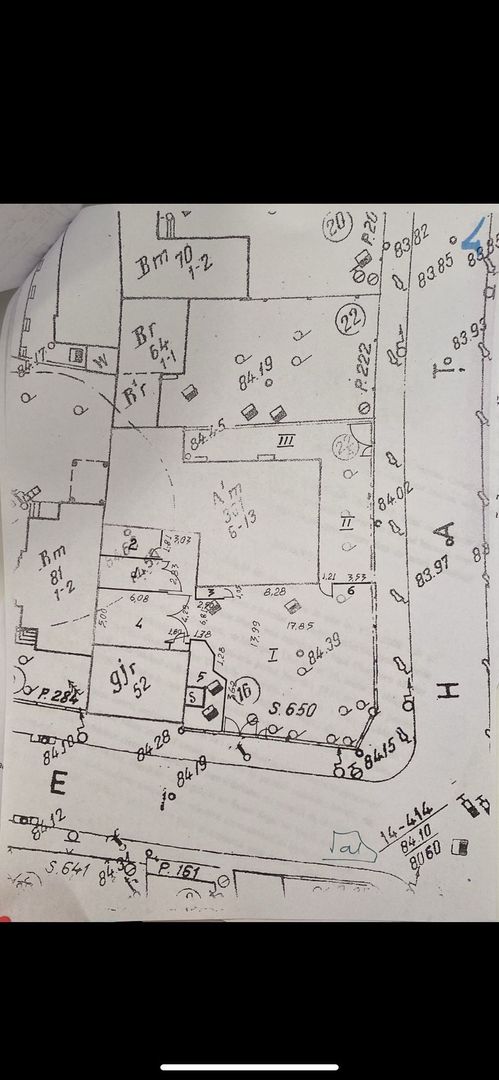 20
P.20
83.82
83.85
Bm 70
1-2
Br
64
1-1
22
83.93
84.17
W
84.19
P.222
T.
B'r
84.45
III
A'm
6-13
II
84.02
A
2
1,81
3,03
83.97
Bm
81
1-2
2,83
1,21
3,53
6,08
3
8,28
6
5,00
4
4,29
6,81
13,99
17,85
1,38
I
84.39
gjr
52
1,28
5
S
3,62
16
S.650
H
P.284
84.28
84.15
84.19
E
84.12
14-414
84.10
8060
S.641
84.31
P.161